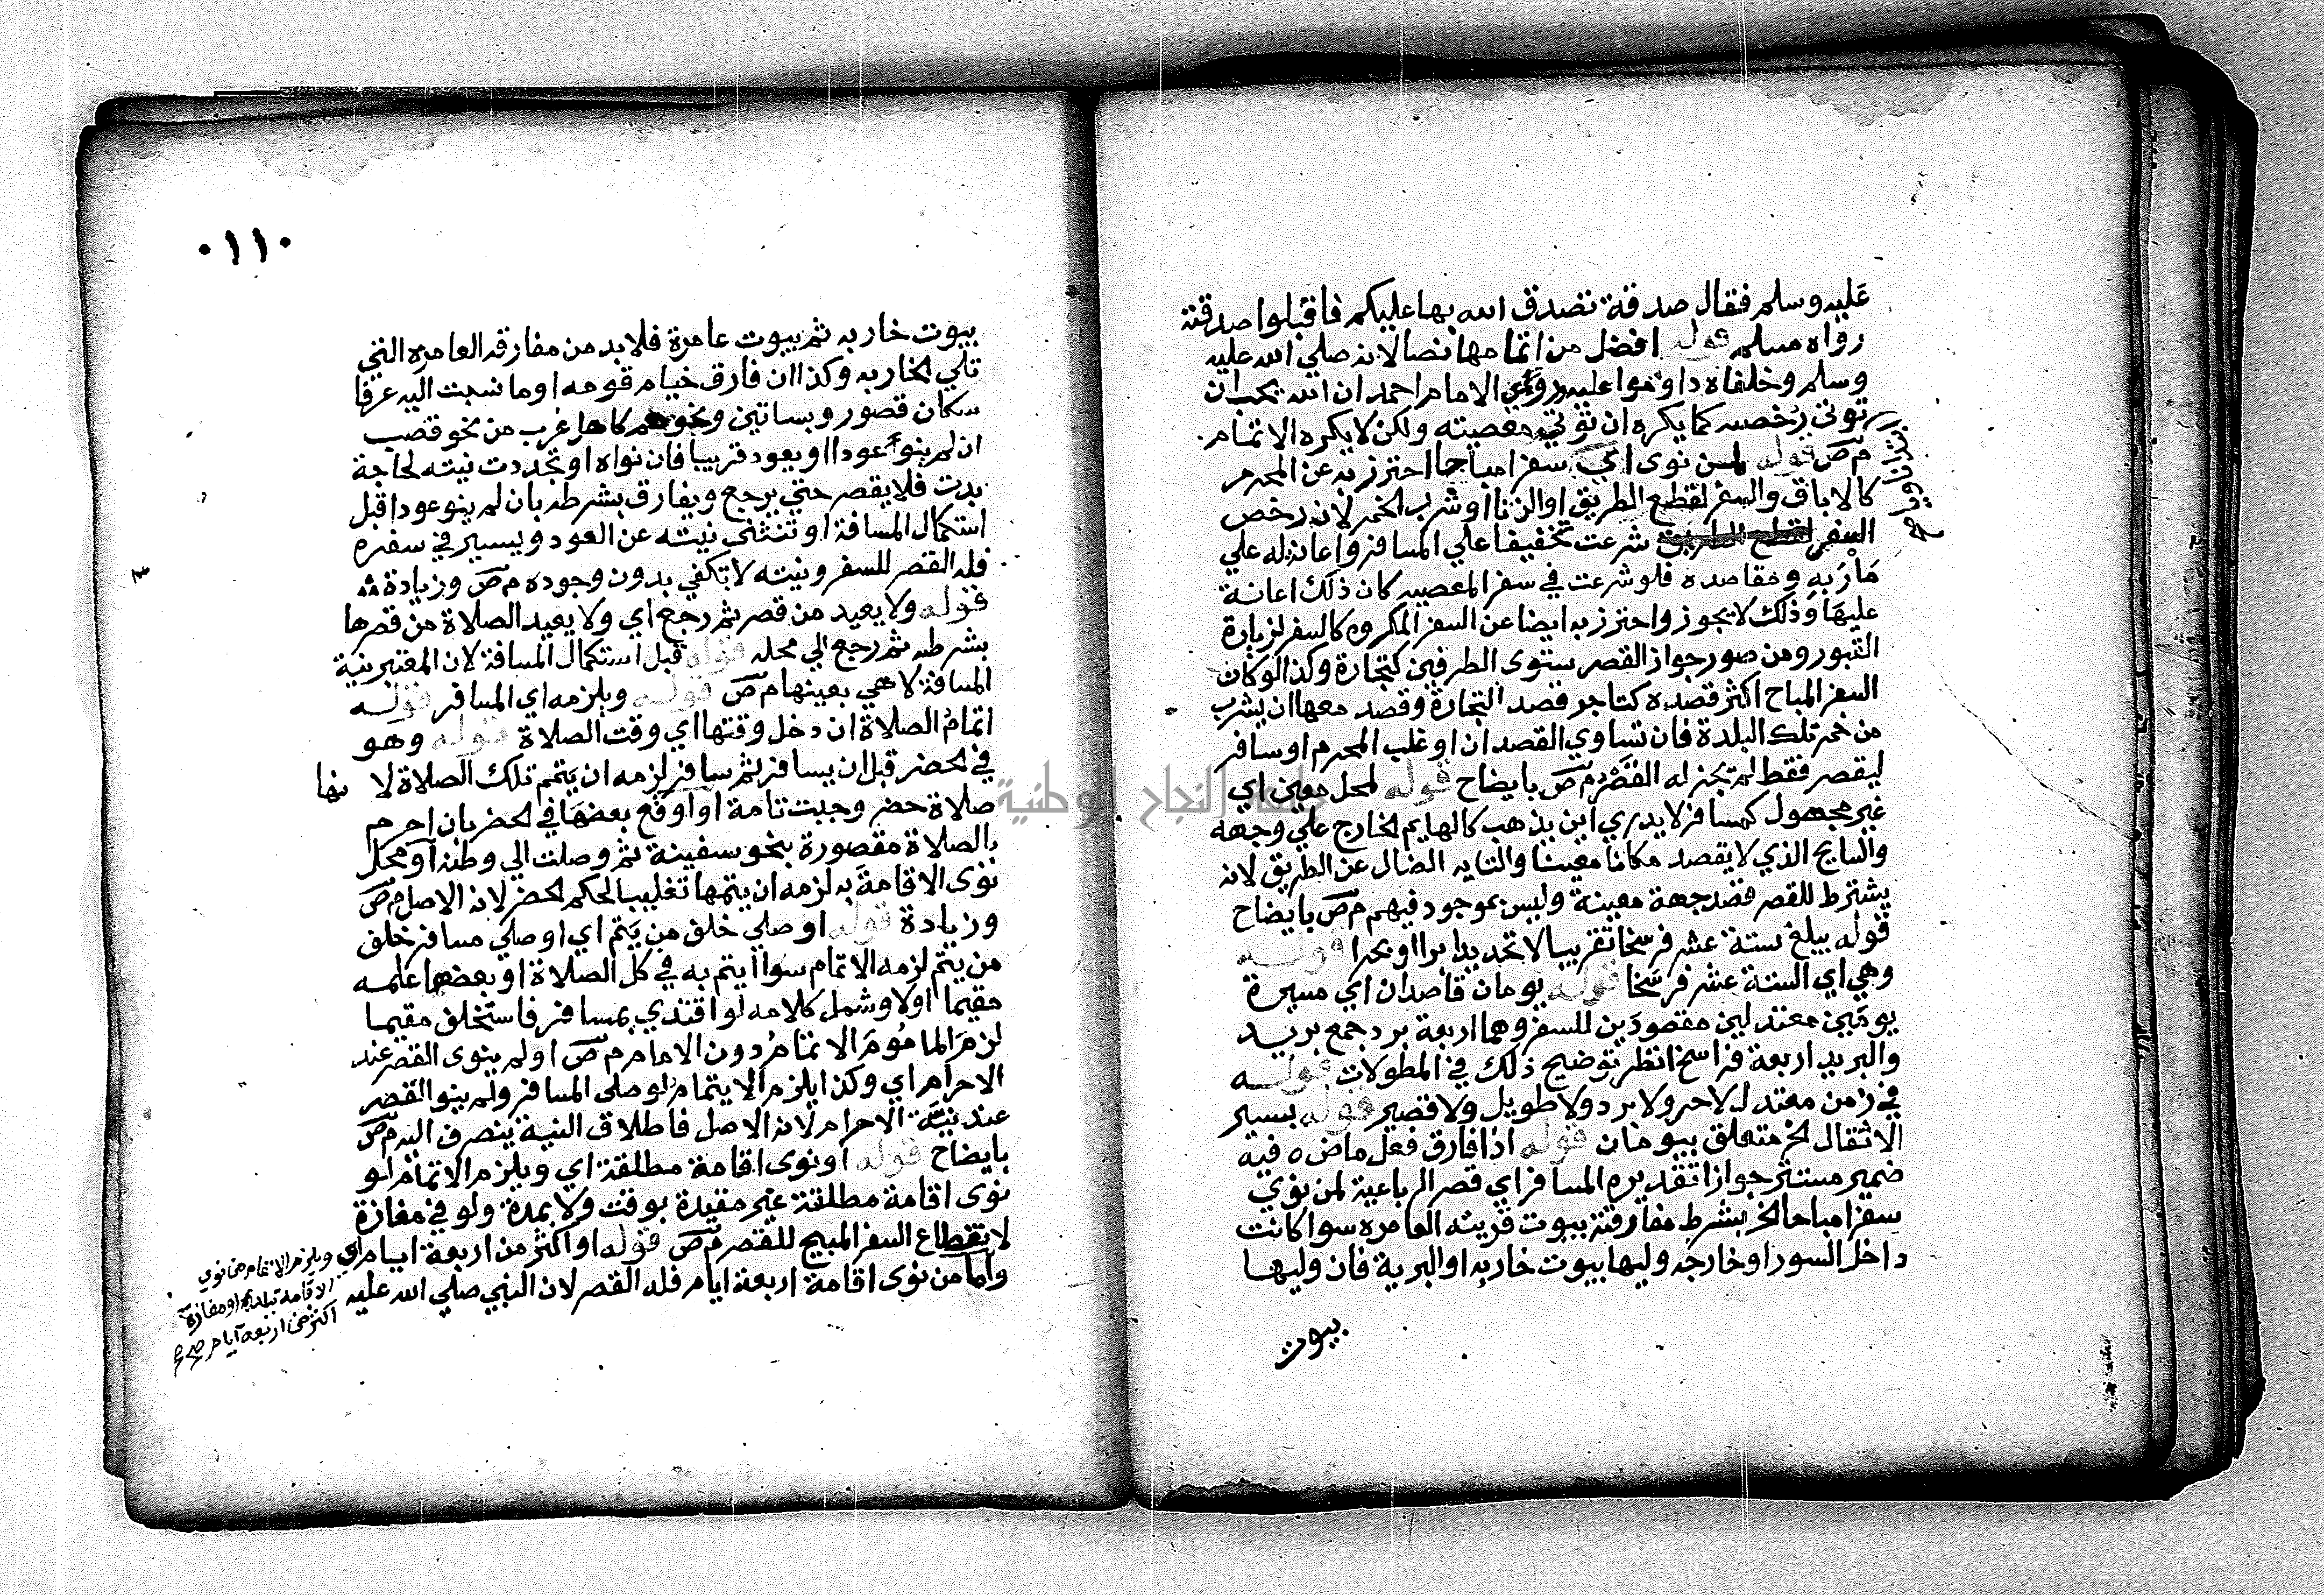 عليه وسلم فقال صدقة تصدق الله بها عليكم فاقبلوا صدقته
رواه مسلم قوله افضل من اتمامها نصا لانه صلي الله عليه
وسلم وخلفاه داوموا عليه وروي الامام احمد ان الله يحب ان
توتي رخصه كما يكره ان توتي معصيته ولكن لا يكره الاتمام
م ص قوله لمن نوى اي سفرا مباحا احترز به عن المحرم
كالاباق والسفر لقطع الطريق او الزنا او شرب الخمر لان رخص
السفر شرعت تخفيفا علي المسافر واعانة له علي
مَأربه ومقاصده فلو شرعت في سفر المعصيه كان ذلك اعانة
عليها وذلك لا يجوز واحترز به ايضا عن السفر المكروه كالسفر لزيارة
القبور ومن صور جواز القصر ستوى الطرفين كتجارة وكذا لو كان
السفر المباح اكثر قصده كتاجر قصد التجارة وقصد معها ان يشرب
من خمر تلك البلدة فان تساوي القصدان او غلب المحرم او سافر
ليقصر فقط لم يجز له القصر م ص بايضاح قوله لمحل معين اي
غير مجهول كمسافر لا يدري اين يذهب كالهايم الخارج علي وجهه
والسايح الذي لا يقصد مكانا معينا والتايه الضال عن الطريق لانه
يشترط للقصر قصد جهة معينة وليس بموجود فيهم م ص بايضاح
قوله يبلغ ستة عشر فرسخا تقريبا لا تحديدا برا او بحرا قوله
وهي اي الستة عشر فرسخا قوله يومان قاصدان اي مسيرة
يومين معتدلين مقصودين للسفر وهما اربعة برد جمع بريد
والبريد اربعة فراسخ انظر توضيح ذلك في المطولات قوله
في زمن معتدل لا حر ولا برد ولا طويل ولا قصير قوله بسير
الاثقال الخ متعلق بيومان قوله اذا فارق فعل ماض ه فيه
ضمير مستتر جوازا تقديره المسافر اي قصر الرباعية لمن نوي
سفرا مباحا الخ بشرط مفارقة بيوت قريته العامره سوا كانت
داخل السور او خارجه وليها بيوت خاربه او البرية فان وليها
بيوت
٠١١٠
بيوت خاربه ثم بيوت عامرة فلا بد من مفارقه العامره التي
تلي الخاربه وكذا ان فارق خيام قومه او ما نسبت اليه عرفا
سكان قصور وبساتين ونحوهم من نحو قصب
ان لم ينو عودا او يعود قريبا فان نواه او تجددت نيته لحاجة
بدت فلا يقصر حتي يرجع ويفارق بشرطه بان لم ينو عودا قبل
استكمال المسافة او تنثني نيته عن العود ويسير في سفره
فله القصر للسفر ونيته لا تكفي بدون وجوده م ص وزيادة
قوله ولا يعيد من قصر ثم رجع اي ولا يعيد الصلاة من قصرها
بشرطه ثم رجع الي محله قوله قبل استكمال المسافة لان المعتبر نية
المسافة لا هي بعينها م ص قوله ويلزمه اي المسافر قوله
اتمام الصلاة ان دخل وقتها اي وقت الصلاة قوله وهو
في الحضر قبل ان يسافر ثم سافر لزمه ان يتمم تلك الصلاة لا نها
صلاة حضر وجبت تامة او اوقع بعضها في الحضر بان احرم
بالصلاة مقصورة بنحو سفينة ثم وصلت الي وطنه او محل
نوى الاقامة به لزمه ان يتمها تغليبا لحكم الحضر لانه الاصل م ص
وزيادة قوله او صلي خلف من يتم اي او صلي مسافر خلف
من يتم لزمه الاتمام سوا ايتم به في كل الصلاة او بعضها علمه
مقيما اولا وشمل كلامه لو اقتدي بمسافر فاستخلف مقيما
لزم الماموم الاتمام دون الامام م ص او لم ينوى القصر عند
الاحرام اي وكذا يلزم الايتمام لو صلى المسافر ولم ينو القصر
عند نية الاحرام لانه الاصل فاطلاق النية ينصرف اليه م ص
بايضاح قوله او نوى اقامة مطلقة اي ويلزم الاتمام لو
نوى اقامة مطلقة غير مقيدة بوقت ولا بمدة ولو في مفازة
لانقطاع السفر المبيح للقصر م ص قوله او اكثر من اربعة ايام اي
واما من نوى اقامة اربعة ايام فله القصر لان النبي صلي الله عليه
ويلزم الاتمام من نوي
الاقامه ببلده او مفازة
اكثر من اربعه ايام صح